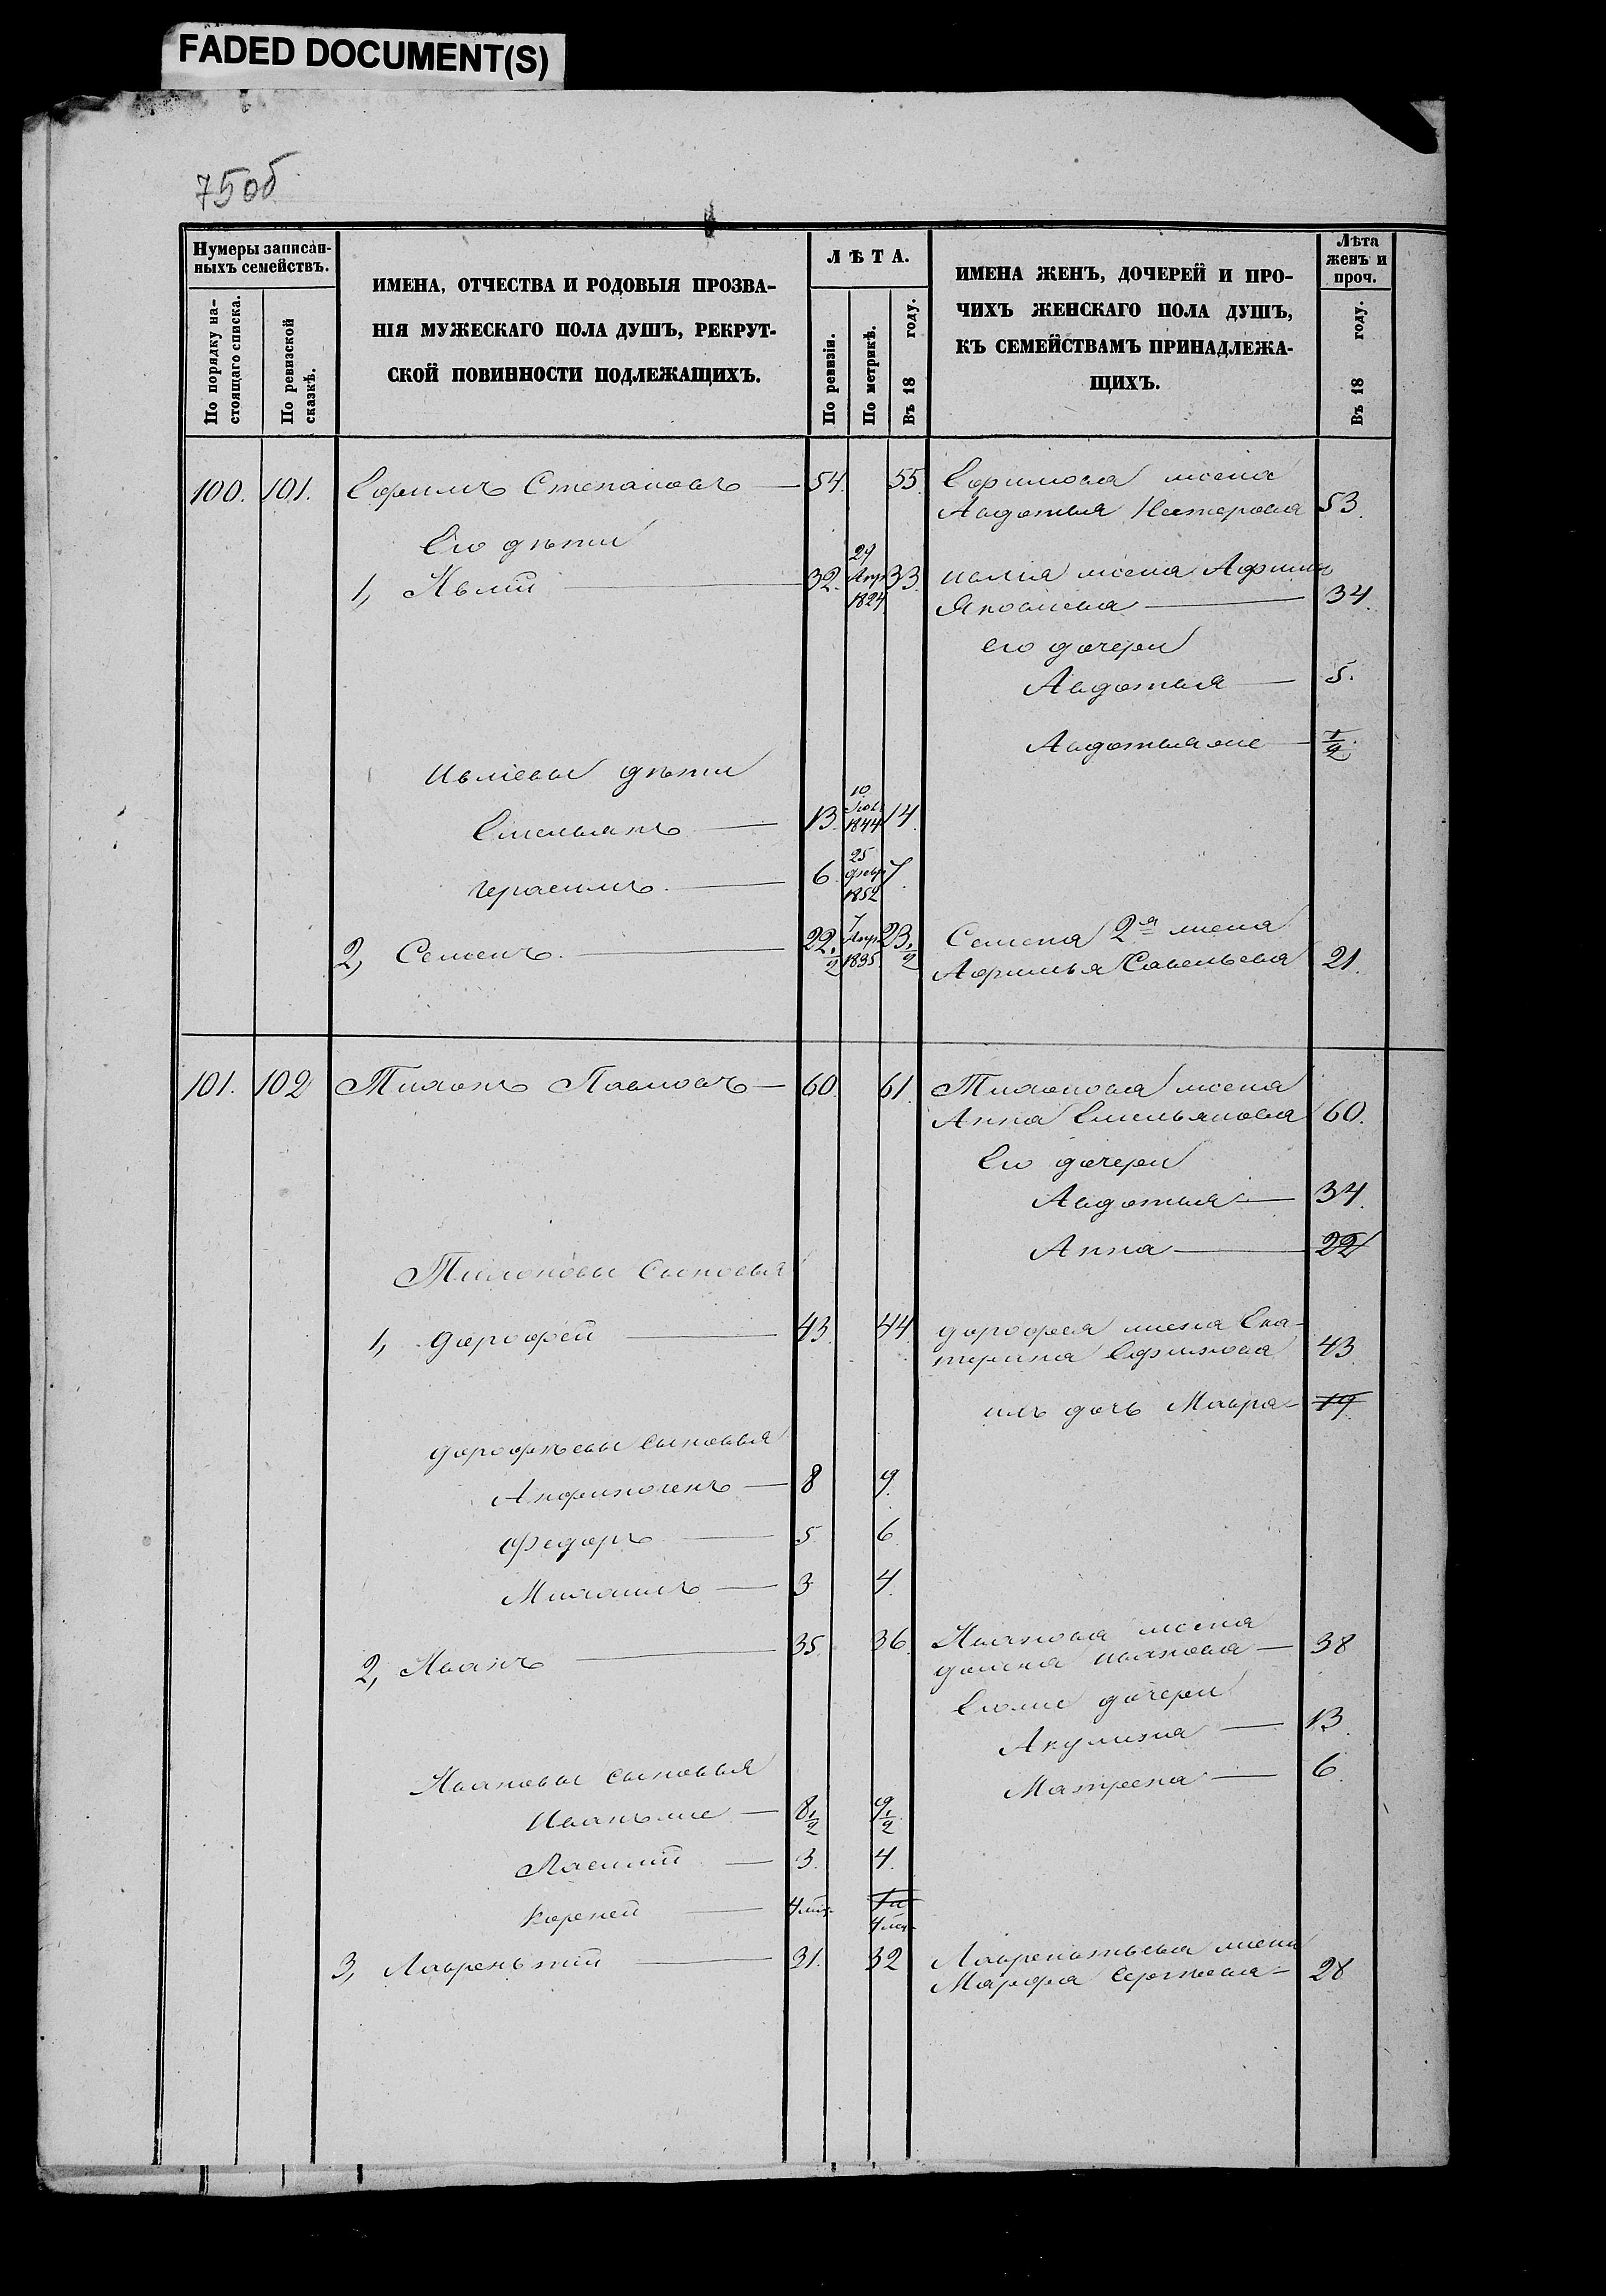 FADED DOCUMENT(S)
75об
Нумеры записан-
ныхъ семействъ.
По порядку на-
стоящаго списка.
По ревизской
сказкѣ.
ИМЕНА, ОТЧЕСТВА И РОДОВЫЯ ПРОЗВА-
НІЯ МУЖЕСКАГО ПОЛА ДУШЪ, РЕКРУТ-
СКОЙ ПОВИННОСТИ ПОДЛЕЖАЩИХЪ.
ЛѢТА.
По ревизіи.
По метрикѣ.
Въ 18 году.
ИМЕНА ЖЕНЪ, ДОЧЕРЕЙ И ПРО-
ЧИХЪ ЖЕНСКАГО ПОЛА ДУШЪ,
КЪ СЕМЕЙСТВАМЪ ПРИНАДЛЕЖА-
ЩИХЪ.
Лѣта
женъ и
проч.
Въ 18 году.
100. 101. Ефимъ Степановъ 54. 55. Ефимова жена
Авдотья Нестерова 53.
Его дѣти
1, Ивлій 32. 29 Апр 1824 33. Ивлія жена Афимья
Яковлева 34.
его дочери
Авдотья 5.
Авдотья же 1/2.
Ивліевы дѣти
Емельянъ 13. 10 1844 14.
Герасимъ 6. 25 февр 1852 7.
2, Семенъ 22 1/2 7 Апр 1835 23 1/2 Семена 2я жена
Афимья Савельева 21.
101. 102 Тихонъ Павловъ 60. 61. Тихонова жена
Анна Емельянова 60.
Его дочери
Авдотья 34.
Анна 22
Тихоновы сыновья
1, Дорофей 43. 44. Дорофея жена Ека-
терина Ефимова 43
ихъ дочь Мавра 19.
Дорофѣевы сыновья
Анфиногенъ 8 9.
Федоръ 5 6.
Михаилъ 3 4.
2, Иванъ 35. 36. Иванова жена
Домна Иванова 38
Егоже дочери
Акулина 13.
Матрена 6.
Ивановы сыновья
Иванъ же 8 1/2 9 1/2
Василий 3. 4.
Корней 4 мѣс.
3, Лаврентий 31. 32 Лаврентьева жена
Марфа Сергѣева 28